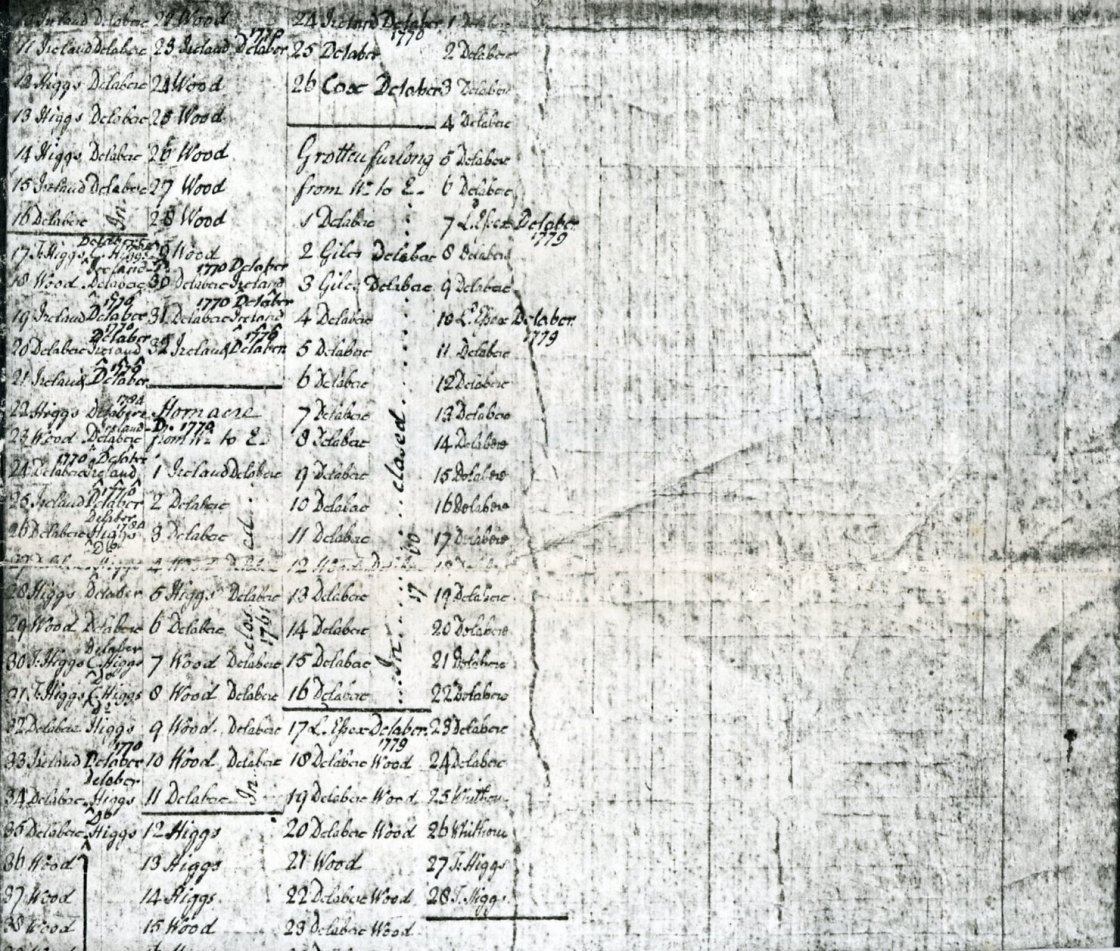 11 Ireland Delabere
12 Higgs Delabere
13 Higgs Delabere
14 Higgs Delabere
15 Ireland Delabere
16 Delabere
17 T. Higgs C. Higgs
18 Wood Delabere
1779
19 Ireland Delaber
1770
Delaber
20 Delabere Ireland
1779
21 Ireland Delaber
1784
22 Higgs Delabere
23 Wood Delabere
1770 Delaber
24 Delabere Ireland
1770
25 Ireland Delaber
Delaber
26 Delabere Higgs
1784
28 Higgs Delaber
29 Wood Delabere
Delaber
30 T. Higgs C. Higgs
31 T. Higgs C. Higgs
32 Delabere Higgs
1770
33 Ireland Delaber
Delaber
34 Delabere Higgs
Do
35 Delabere Higgs
36 Wood
37 Wood
38 Wood
In
21 Wood
1770
23 Ireland Delaber
24 Wood
25 Wood
26 Wood
27 Wood
28 Wood
29 Wood
1770 Delaber
30 Delabere Ireland
1770 Delaber
31 Delabere Ireland
1776
32 Ireland Delaber
Homacre
from W. to E.
1 Ireland Delabere
2 Delabere
3 Delabere
5 Higgs Delabere
6 Delabere
7 Wood Delabere
8 Wood Delabere
9 Wood Delabere
10 Wood Delabere
11 Delabere
In closed
1761
12 Higgs
13 Higgs
14 Higgs
15 Wood
24 Ireland Delaber
1770
25 Delaber
26 Cox Delaber
Grotten furlong
from W. to E.
1 Delabere
2 Giles Delabere
3 Giles Delabere
4 Delabere
5 Delabere
6 Delabere
7 Delabere
8 Delabere
9 Delabere
10 Delabere
11 Delabere
13 Delabere
14 Delabere
15 Delabere
16 Delabere
In closed
17 L. Essex Delaber
1779
18 Delabere Wood
19 Delabere Wood
20 Delabere Wood
21 Wood
22 Delabere Wood
23 Delabere Wood
1 Delabere
2 Delabere
3 Delabere
4 Delabere
5 Delabere
6 Delabere
7 L. Essex Delaber
1779
8 Delabere
9 Delabere
10 L. Essex Delaber
1779
11 Delabere
12 Delabere
13 Delabere
14 Delabere
15 Delabere
16 Delabere
17 Delabere
19 Delabere
20 Delabere
21 Delabere
22 Delabere
23 Delabere
24 Delabere
25 Whithorn
26 Whithorn
27 T. Higgs
28 T. Higgs